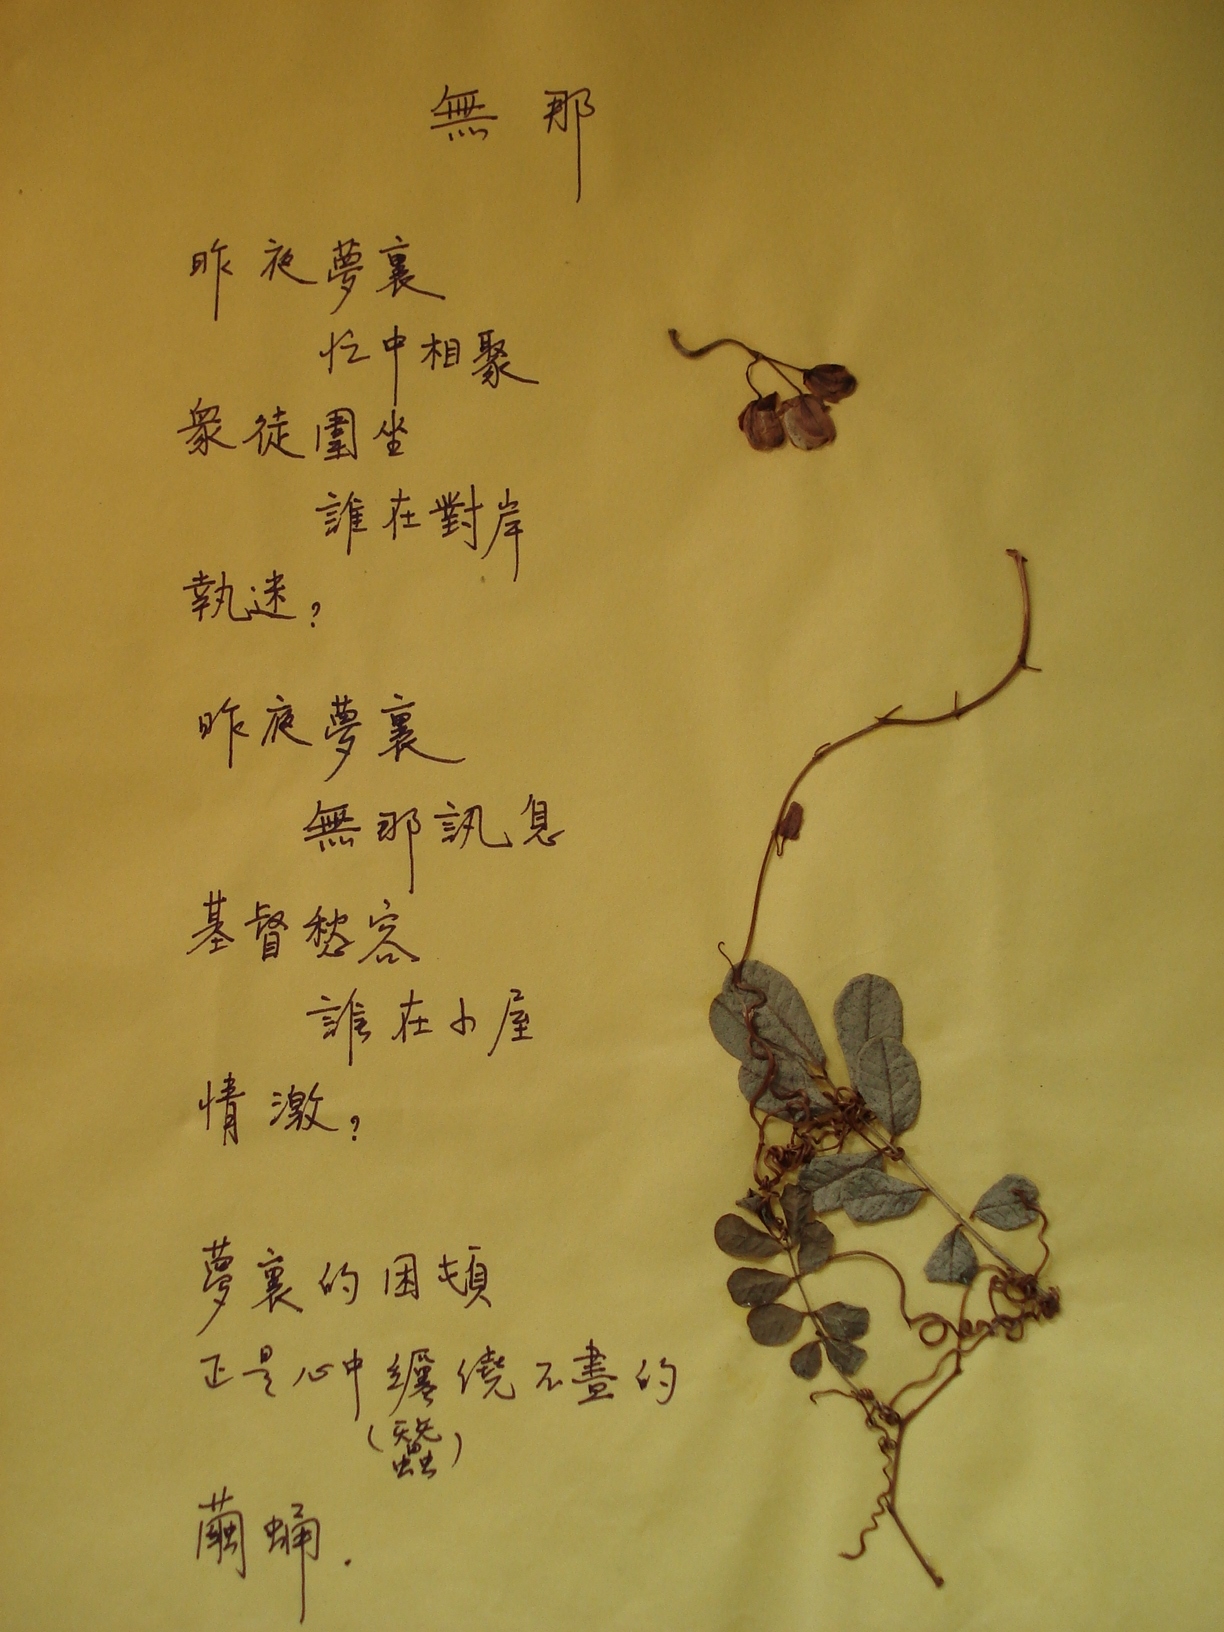 無那
昨夜夢裏
忙中相聚
眾徒圍坐
誰在對岸
執迷？
昨夜夢裏
無那訊息
基督愁容
誰在小屋
情激？
夢裏的困頓
正是心中纏繞不盡的
（蠶）
繭蛹.